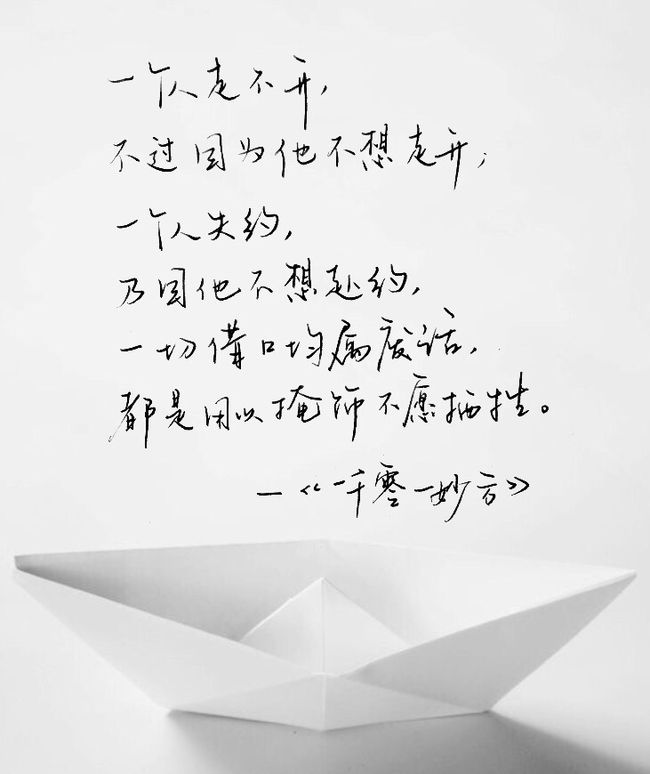 一个人走不开，
不过因为他不想走开；
一个人失约，
乃因他不想赴约，
一切借口均属废话，
都是用以掩饰不愿牺牲。
—《一千零一妙方》